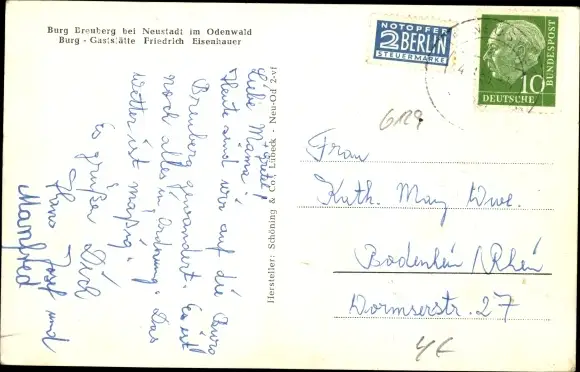 Burg Breuberg bei Neustadt im Odenwald
Burg - Gaststätte Friedrich Eisenhauer
Liebe Mama!
Heute sind wir auf die Burg
Breuberg gewandert. Es ist
noch alles in Ordnung. Das
Wetter ist mäßig.
Es grüßen Dich
Hans Josef und
Manfred
Hersteller: Schöning & Co., Lübeck - Neu-Od 2-vf
NOTOPFER
2 BERLIN
STEUERMARKE
10
DEUTSCHE BUNDESPOST
6129
Frau
Kath. May Wwe.
Bodenheim/Rhein
Wormserstr. 27
4€